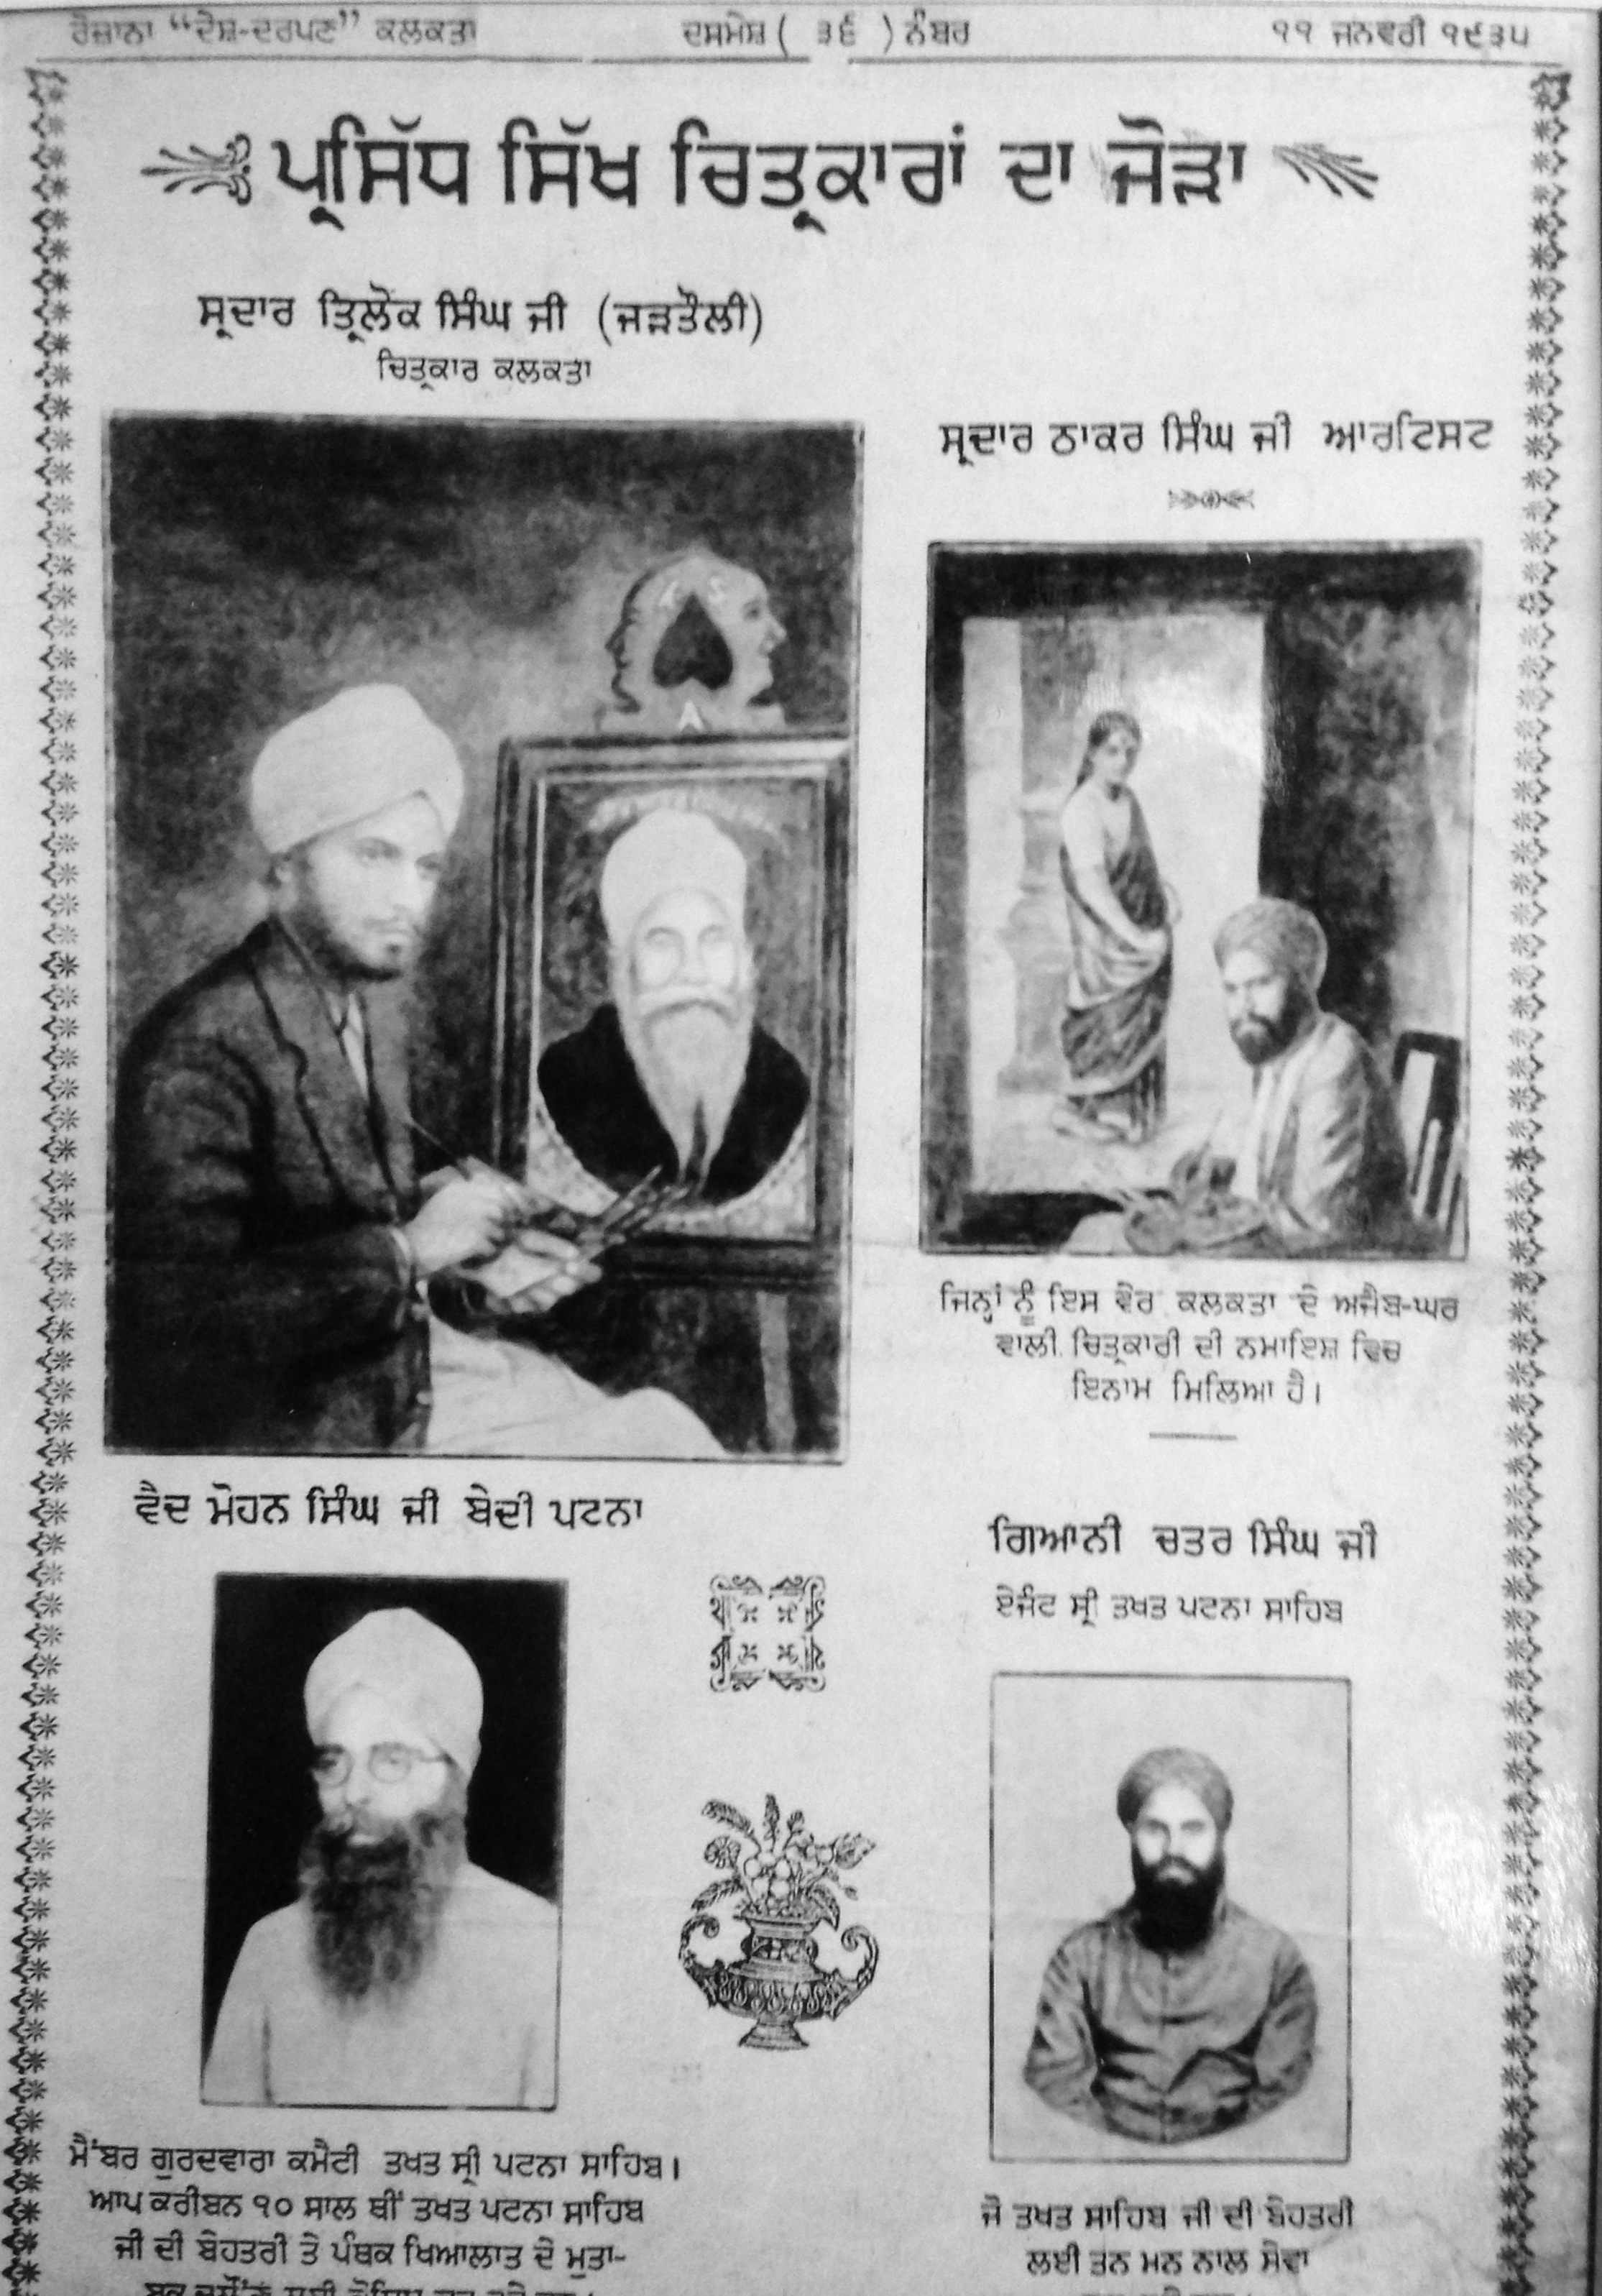 ਰੋਜ਼ਾਨਾ “ਦੇਸ਼-ਦਰਪਣ” ਕਲਕਤਾ ਦਸਮੇਸ਼ ( ੩੬ ) ਨੰਬਰ ੧੧ ਜਨਵਰੀ ੧੯੩੫
ਪ੍ਰਸਿੱਧ ਸਿੱਖ ਚਿਤ੍ਰਕਾਰਾਂ ਦਾ ਜੋੜਾ
ਸ੍ਰਦਾਰ ਤ੍ਰਿਲੋਕ ਸਿੰਘ ਜੀ (ਜੜਤੌਲੀ)
ਚਿਤ੍ਰਕਾਰ ਕਲਕਤਾ
ਸ੍ਰਦਾਰ ਠਾਕਰ ਸਿੰਘ ਜੀ ਆਰਟਿਸਟ
ਜਿਨ੍ਹਾਂ ਨੂੰ ਇਸ ਵੇਰ ਕਲਕਤਾ ਦੇ ਅਜੈਬ-ਘਰ
ਵਾਲੀ ਚਿਤ੍ਰਕਾਰੀ ਦੀ ਨਮਾਇਸ਼ ਵਿਚ
ਇਨਾਮ ਮਿਲਿਆ ਹੈ।
ਵੈਦ ਮੋਹਨ ਸਿੰਘ ਜੀ ਬੇਦੀ ਪਟਨਾ
ਮੈਂਬਰ ਗੁਰਦਵਾਰਾ ਕਮੈਟੀ ਤਖਤ ਸ੍ਰੀ ਪਟਨਾ ਸਾਹਿਬ।
ਆਪ ਕਰੀਬਨ ੧੦ ਸਾਲ ਥੀਂ ਤਖਤ ਪਟਨਾ ਸਾਹਿਬ
ਜੀ ਦੀ ਬੇਹਤਰੀ ਤੇ ਪੰਥਕ ਖਿਆਲਾਤ ਦੇ ਮੁਤਾ-
ਗਿਆਨੀ ਚਤਰ ਸਿੰਘ ਜੀ
ਏਜੰਟ ਸ੍ਰੀ ਤਖਤ ਪਟਨਾ ਸਾਹਿਬ
ਜੋ ਤਖਤ ਸਾਹਿਬ ਜੀ ਦੀ ਬੇਹਤਰੀ
ਲਈ ਤਨ ਮਨ ਨਾਲ ਸੇਵਾ